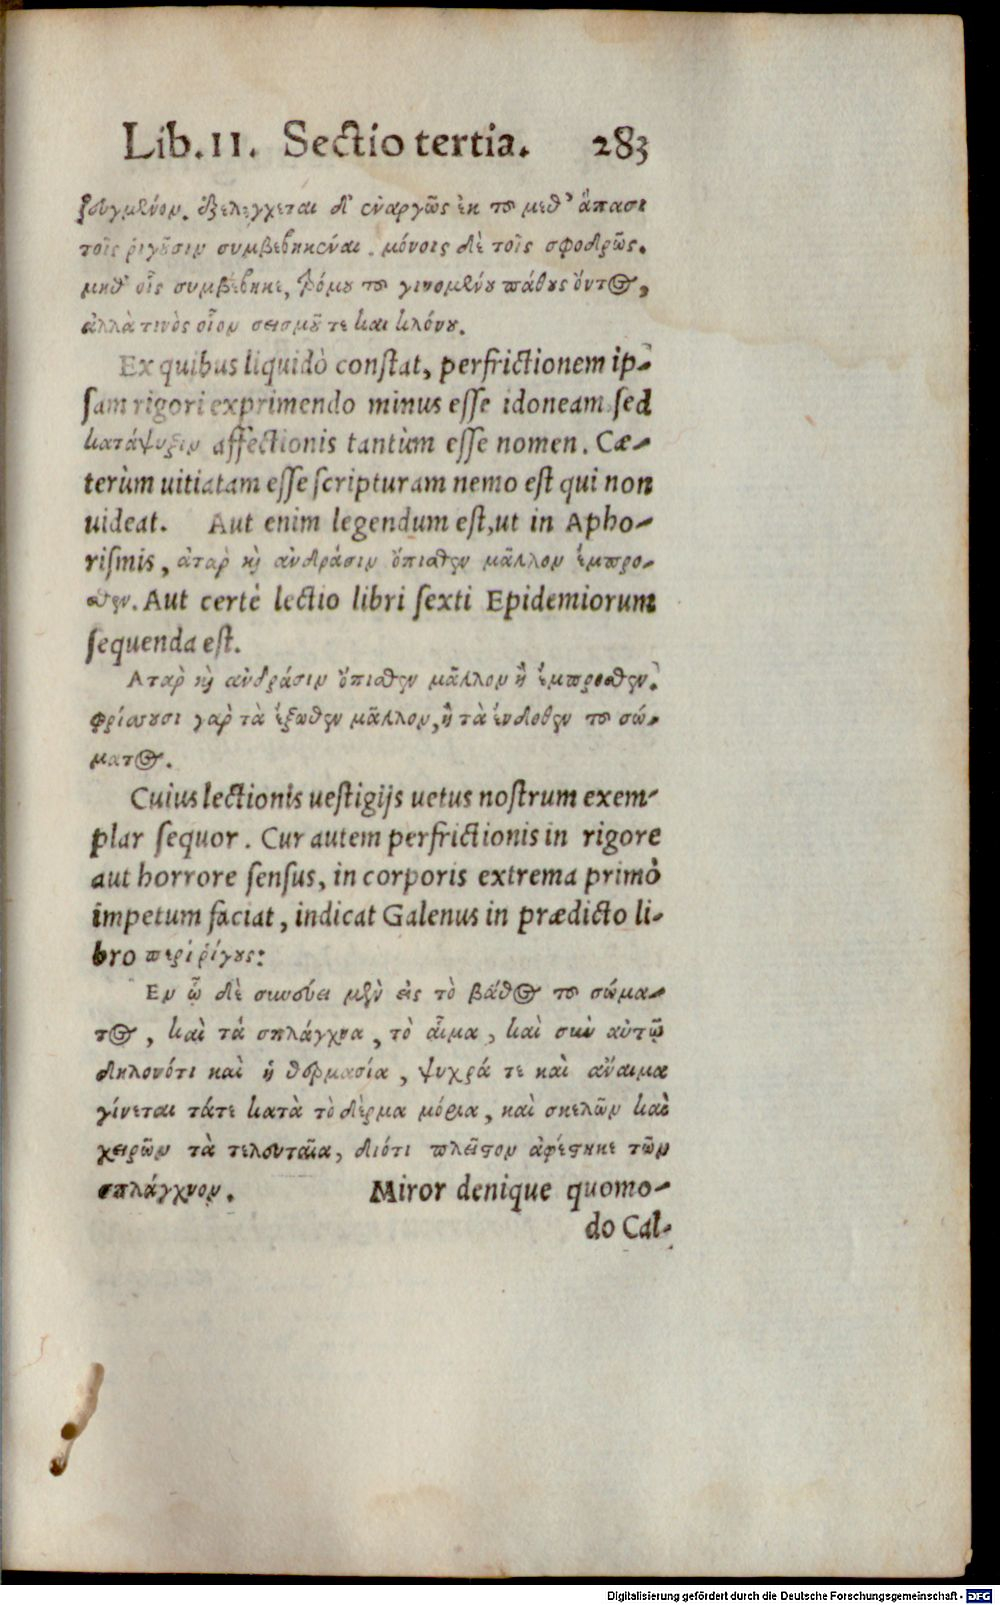 Lib. II. Sectio tertia. 283
ζευγμένον. ἐξελέγχεται δ' ἐναργῶς ἐκ τοῦ μεθ' ἅπασι
τοῖς ῥιγῶσιν συμβεβηκέναι. μόνοις δὲ τοῖς σφοδρῶς.
μηθ' οἷς συμβέβηκε, τρόμου τοῦ γινομένου πάθους ὄντος,
ἀλλὰ τινὸς οἷον σεισμοῦ τε καὶ κλόνου.
Ex quibus liquidò constat, perfrictionem ip-
sam rigori exprimendo minus esse idoneam sed
κατάψυξιν affectionis tantùm esse nomen. Cæ-
terùm uitiatam esse scripturam nemo est qui non
uideat. Aut enim legendum est, ut in Apho-
rismis, ἀτὰρ καὶ ἀνδράσιν ὄπισθεν μᾶλλον ἔμπρο-
σθεν. Aut certè lectio libri sexti Epidemiorum
sequenda est.
Ατὰρ καὶ ἀνδράσιν ὄπισθεν μᾶλλον ἢ ἔμπροσθεν.
φρίσσουσι γὰρ τὰ ἔξωθεν μᾶλλον, ἢ τὰ ἔνδοθεν τοῦ σώ-
ματος.
Cuius lectionis uestigijs uetus nostrum exem-
plar sequor. Cur autem perfrictionis in rigore
aut horrore sensus, in corporis extrema primò
impetum faciat, indicat Galenus in prædicto li-
bro περὶ ῥίγους:
Εν ᾧ δὲ συννεύει μὲν εἰς τὸ βάθος τοῦ σώμα-
τος, καὶ τὰ σπλάγχνα, τὸ αἷμα, καὶ σὺν αὐτῷ
δηλονότι καὶ ἡ θερμασία, ψυχρά τε καὶ ἄναιμα
γίνεται τάτε κατὰ τὸ δέρμα μόρια, καὶ σκελῶν καὶ
χειρῶν τὰ τελευταῖα, διότι πλεῖστον ἀφέστηκε τῶν
σπλάγχνον. Miror denique quomo-
do Cal-
Digitalisierung gefördert durch die Deutsche Forschungsgemeinschaft - DFG